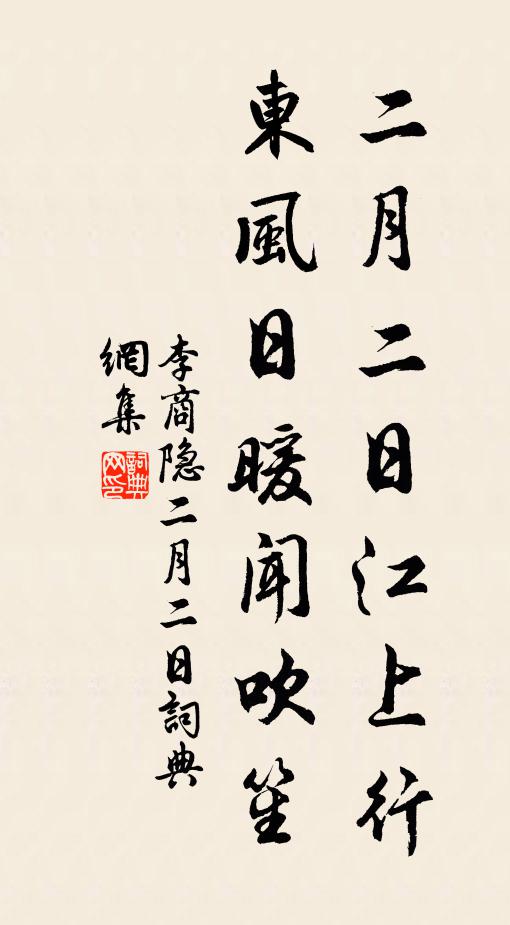 二月二日江上行
東風日暖聞吹笙
李商隐二月二日詞典
網集
詞典
网印